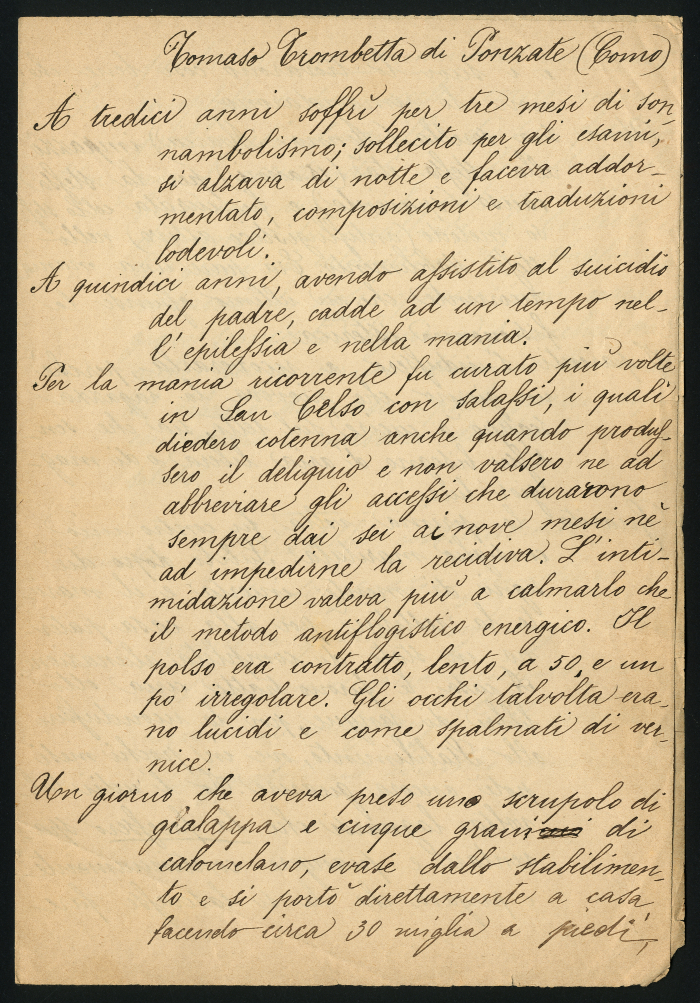 Tomaso Trombetta di Ponzate (Como)
A tredici anni soffrì per tre mesi di son-
nambolismo; sollecito per gli esami,
si alzava di notte e faceva addor-
mentato, composizioni e traduzioni
lodevoli.
A quindici anni, avendo assistito al suicidio
del padre, cadde ad un tempo nel-
l'epilessia e nella mania.
Per la mania ricorrente fu curato più volte
in San Celso con salassi, i quali
diedero cotenna anche quando produs-
sero il deliquio e non valsero ne ad
abbreviare gli accessi che durarono
sempre dai sei ai nove mesi nè
ad impedirne la recidiva. L'inti-
midazione valeva più a calmarlo che
il metodo antiflogistico energico. Il
polso era contratto, lento, a 50, e un
pò irregolare. Gli occhi talvolta era-
no lucidi e come spalmati di ver-
nice.
Un giorno che aveva preso uno scrupolo di
gialappa e cinque grani di
calomelano, evase dallo stabilimen-
to e si portò direttamente a casa
facendo circa 30 miglia a piedi,